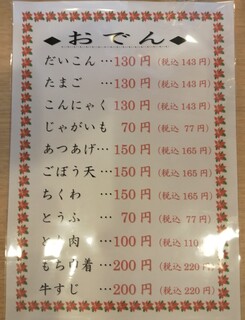 ◆おでん◆
だいこん…130円(税込 143円)
たまご…130円(税込 143円)
こんにゃく…130円(税込 143円)
じゃがいも 70円(税込 77円)
あつあげ…150円(税込 165円)
ごぼう天…150円(税込 165円)
ちくわ…150円(税込 165円)
とうふ…70円(税込 77円)
肉…100円(税込 110
もち巾着…200円(税込 220円)
牛すじ…200円(税込 220円)